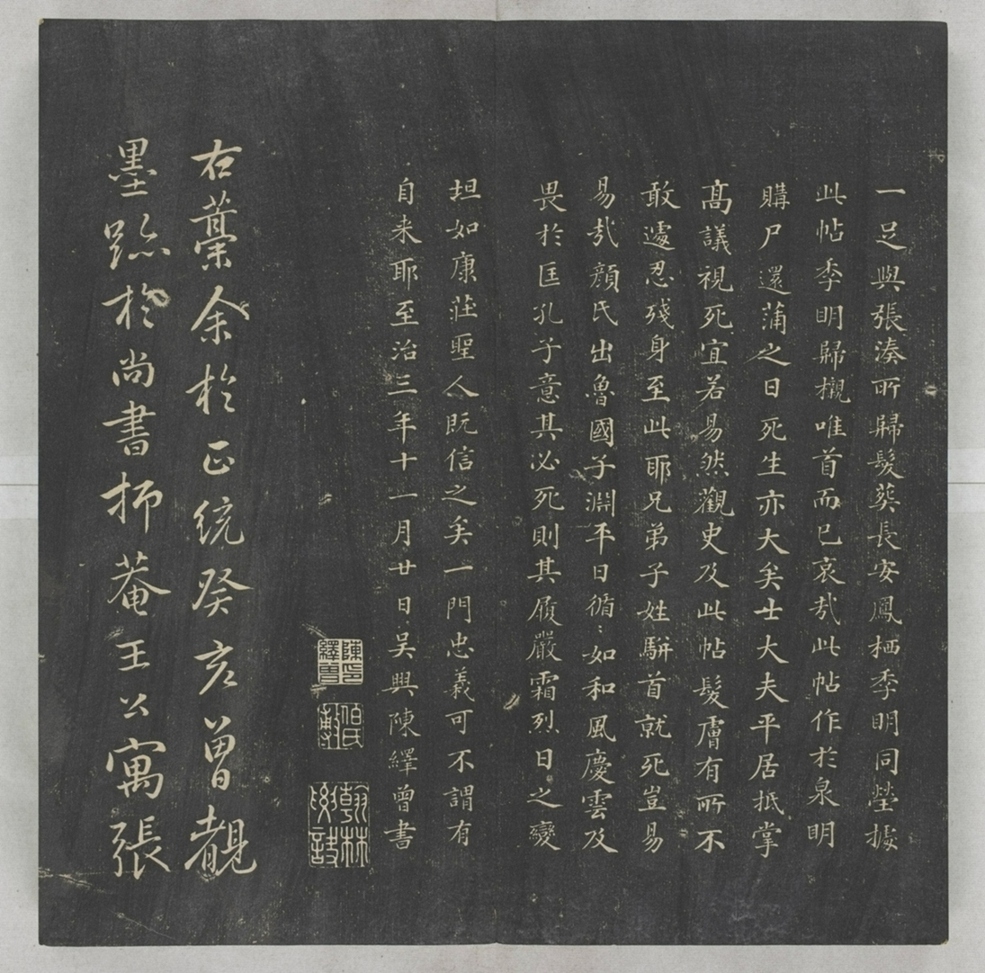 一足與張湊所歸髮葬長安鳳栖季明同塋據
此帖季明歸櫬唯首而已哀哉此帖作於泉明
購尸還蒲之日死生亦大矣士大夫平居抵掌
高議視死宜若易然觀史及此帖髮膚有所不
敢遽忍殘身至此耶兄弟子姓駢首就死豈易
易哉顏氏出魯國子淵平日循〻如和風慶雲及
畏於匡孔子意其必死則其履嚴霜烈日之變
坦如康莊聖人既信之矣一門忠義可不謂有
自来耶至治三年十一月廿日吳興陳繹曾書
陳繹曾印
伯氏
翰林
右藁余於正統癸亥曾覩
墨跡於尚書抑菴王公寓張